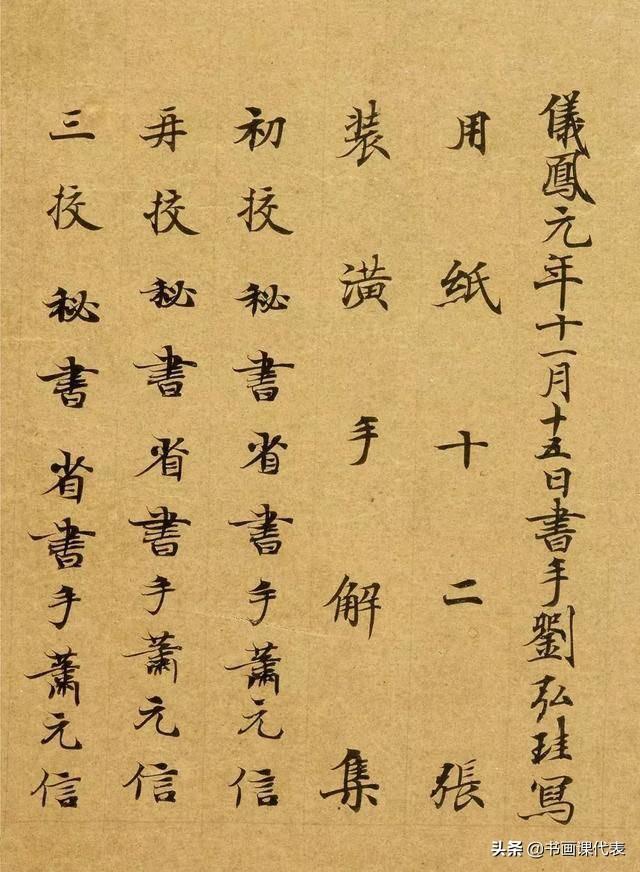 儀鳳元年十一月十五日書手劉弘珪寫
用紙十二張
装潢手解集
初挍秘書省書手蕭元信
再挍秘書省書手蕭元信
三挍秘書省書手蕭元信
头条 @书画课代表